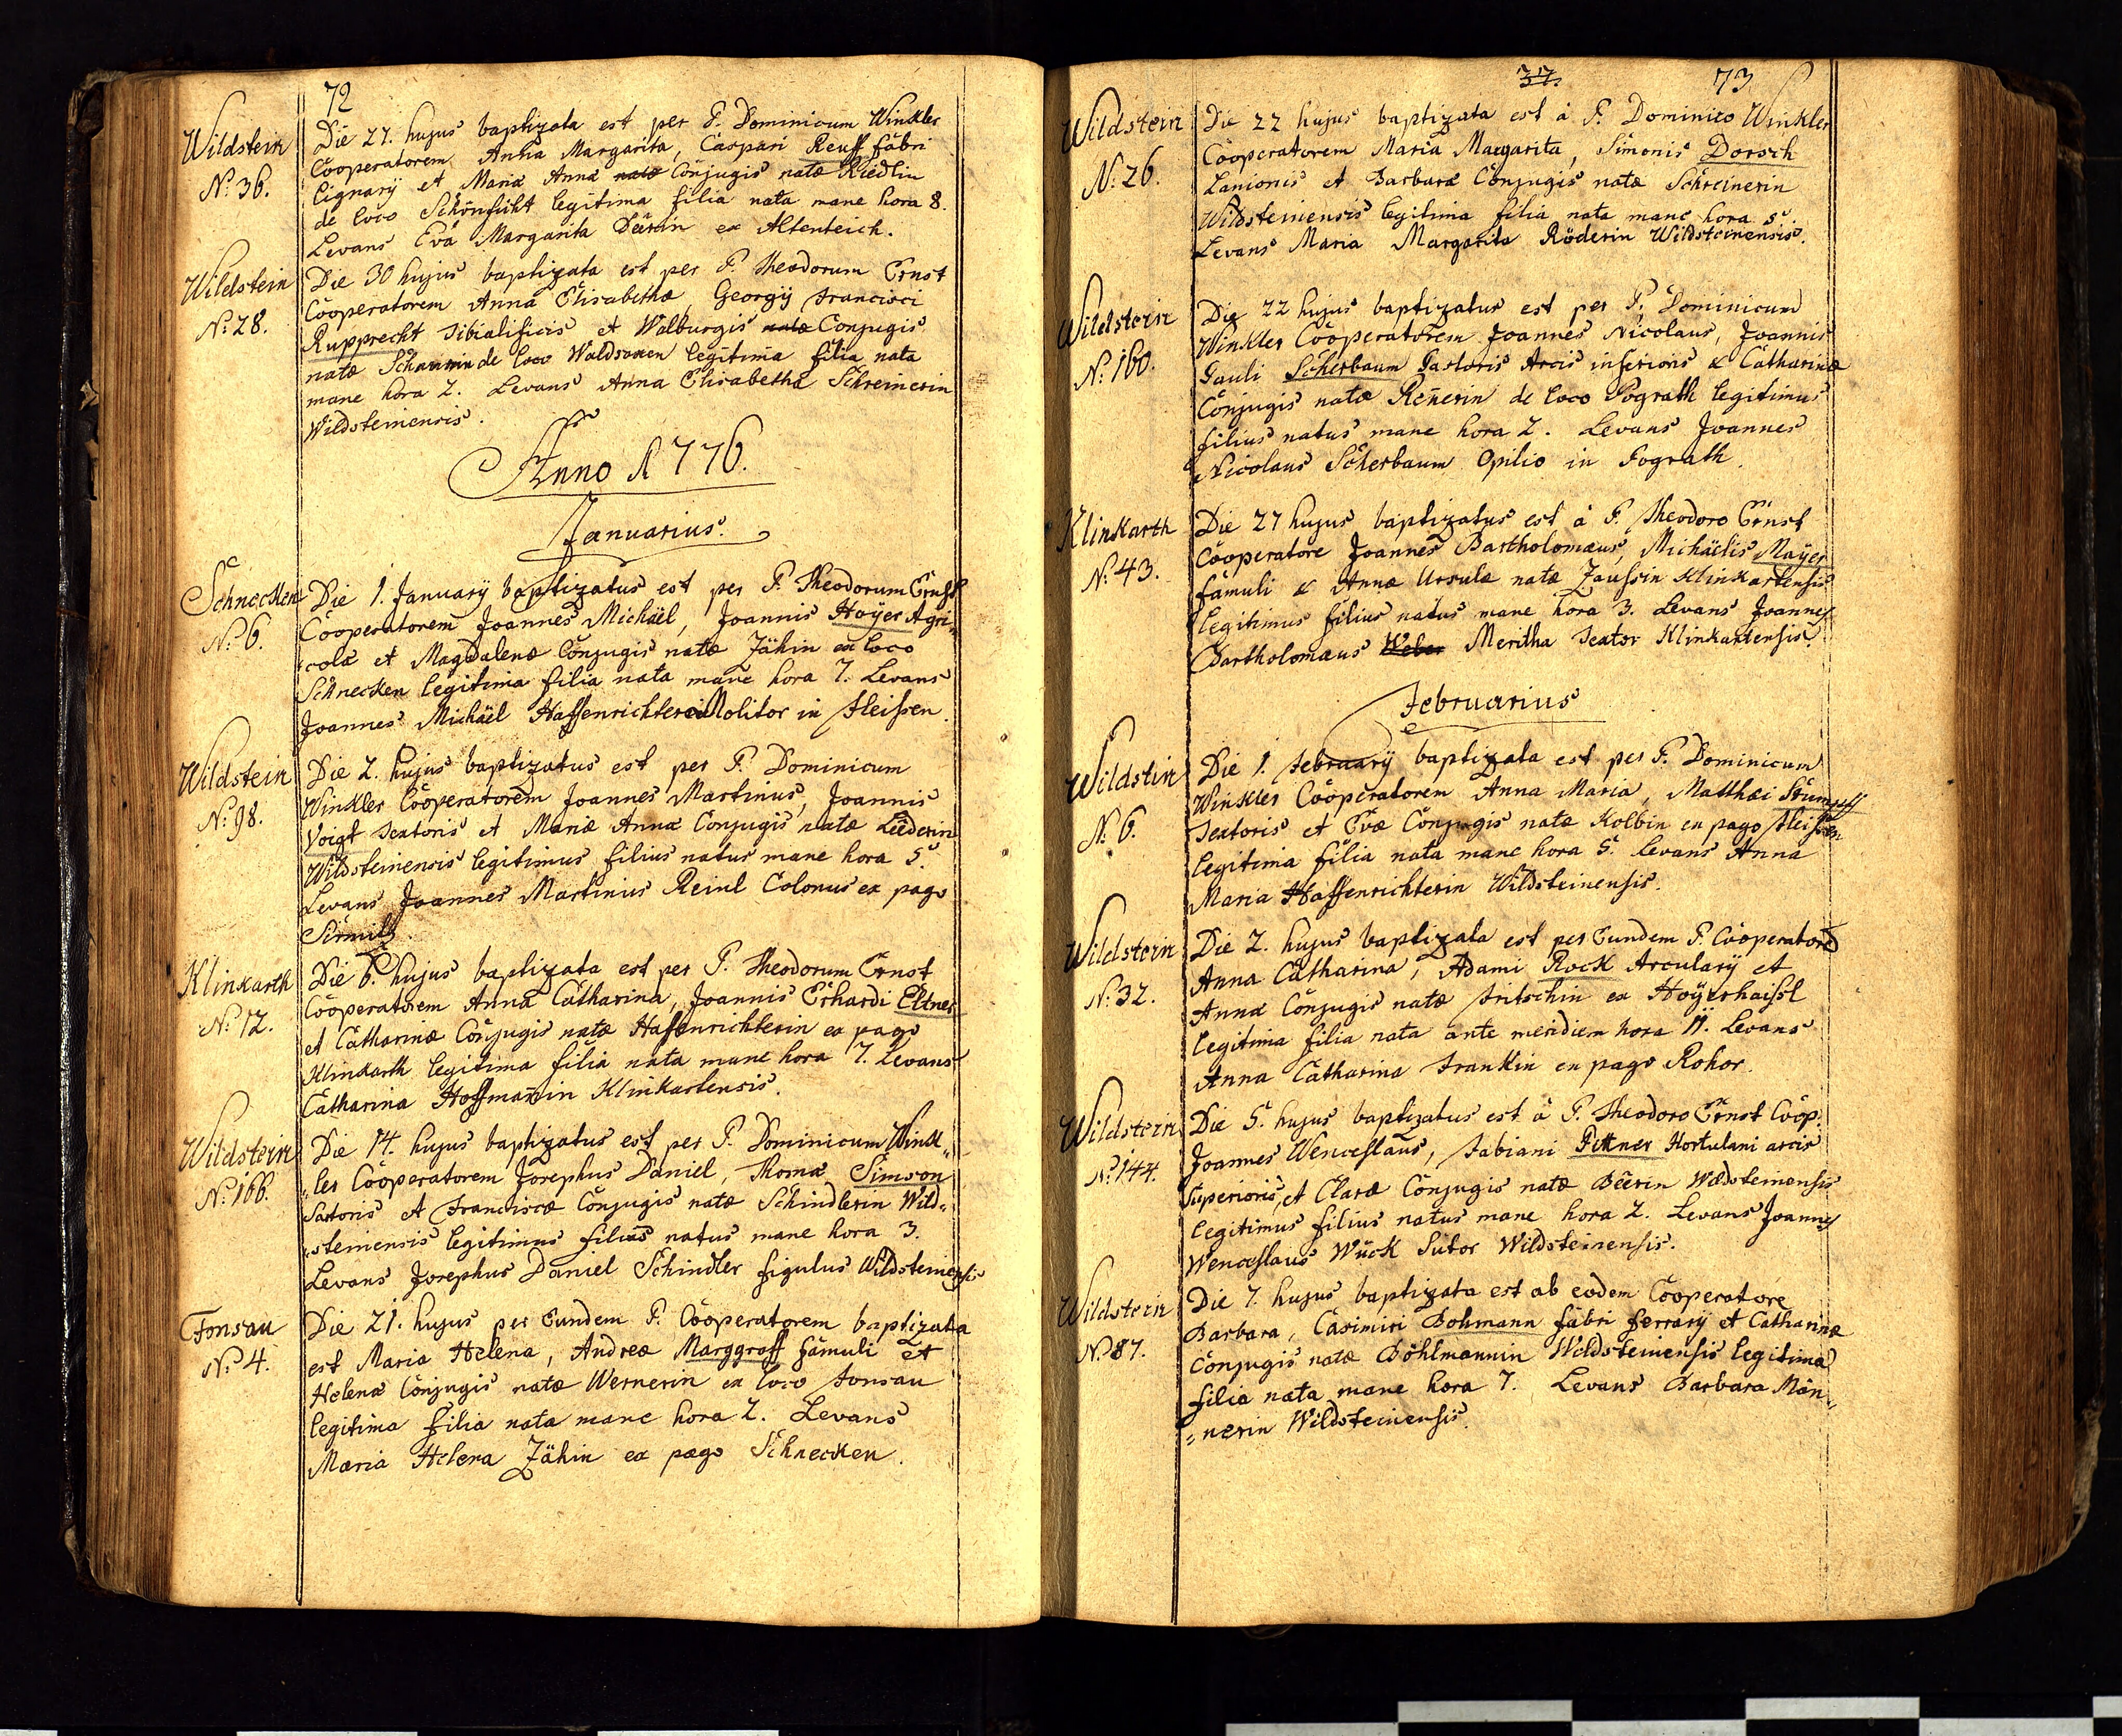 72
Wildstein
N: 36.
Die 27. hujus baptizata est per P. Dominicum Winkler
Cooperatorem Anna Margarita, Caspari Reuff fabri
lignarÿ et Maria Anna natæ Conjugis natæ Riedlin
de loco Schönficht legitima filia nata mane hora 8.
Levans Eva Margarita ex Altenteich.
Wildstein
N: 28.
Die 30 hujus baptizata est per P. Theodorum Ernst
Cooperatorem Anna Elisabetha, Georgÿ Francisci
Rupprecht tibialificis et Walburgis natæ Conjugis
natæ de loco Waldsaxen legitima filia nata
mane hora 2. Levans Anna Elisabetha Schreinerin
Wildsteinensis.
Anno 1776.
Januarius.
Schnecken
N: 6.
Die 1. Januarÿ baptizatus est per P. Theodorum Ernst
Cooperatorem Joannes Michäel, Joannis Hoÿer Agri-
colæ et Magdalenæ Conjugis natæ Jähin ex loco
Schnecken legitima filia nata mane hora 7. Levans
Joannes Michäel Haffenrichter Molitor in Fleissen.
Wildstein
N: 98.
Die 2. hujus baptizatus est per P. Dominicum
Winkler Cooperatorem Joannes Martinus, Joannis
Voigt Textoris et Mariæ Annæ Conjugis natæ Lëderin
Wildsteinensis legitimus filius natus mane hora 5.
Levans Joannes Martinius Reinl Colonus ex pago
Sirmitz.
Klinkarth
N: 12.
Die 6. hujus baptizata est per P. Theodorum Ernst
Cooperatorem Anna Catharina, Joannis Erhardi Eltner
et Catharinæ Conjugis natæ Haffenrichterin ex pago
Klinkarth legitima filia nata mane hora 7. Levans
Catharina Hoffmañin Klinkartensis.
Wildstein
N: 166.
Die 14. hujus baptizatus est per P. Dominicum Wink„
„ler Cooperatorem Josephus Daniel, Thomæ Simson
Sartoris et Franciscæ Conjugis natæ Schindlerin Wild„
„steinensis legitimus filius natus mane hora 3.
Levans Josephus Daniel Schindler figulus Wildsteinensis
Fonsau
N: 4.
Die 21. hujus per Eundem P. Cooperatorem baptizata
est Maria Helena, Andreæ Marggraff famuli et
Helenæ Conjugis natæ Wernerin ex loco Fonsau
legitima filia nata mane hora 2. Levans
Maria Helena Jähin ex pago Schnecken.
37. 73
Wildstein
N: 26.
Die 22 hujus baptizata est à P. Dominico Winkler
Cooperatorem Maria Margarita, Simonis Dorsch
Lanionis et Barbaræ Conjugis natæ Schreinerin
Wildsteinensis legitima filia nata mane hora 5.
Levans Maria Margarita Röderin Wildsteinensis.
Wildstein
N: 160.
Die 22 hujus baptizatus est per P. Dominicum
Winkler Cooperatorem Joannes Nicolaus, Joannis
Pauli Scherbaum Pastoris Arcis inferioris & Catharinæ
Conjugis natæ Reñerin de loco Pograth legitimus
filius natus mane hora 2. Levans Joannes
Nicolaus Scherbaum Opilio in Pograth.
Klinkarth
N: 43.
Die 27 hujus baptizatus est à P. Theodoro Ernst
Cooperatore Joannes Bartholomæus, Michäelis Maÿer
famuli & Annæ Ursulæ natæ Zaussin Klinkartensis
legitimus filius natus mane hora 3. Levans Joannes
Bartholomæus Weber Meritha Textor Klinkartensis.
Februarius
Wildstin
N: 6.
Die 1. Februarÿ baptizata est per P. Dominicum
Winkler Cooperatorem Anna Maria, Matthæi Stumpff
Textoris et Evæ Conjugis natæ Kolbin ex pago Fleissen
legitima filia nata mane hora 5. Levans Anna
Maria Haffenrichterin Wildsteinensis.
Wildstein
N: 32.
Die 2. hujus baptizata est per Eundem P. Cooperatore
Anna Catharina, Adami Rock Arcularÿ et
Annæ Conjugis natæ Fritschin ex Hoÿerhaissl
legitima filia nata ante meridiem hora 11. Levans
Anna Catharina Frankin ex pago Rohor.
Wildstein
N: 144.
Die 5. hujus baptizatus est à P. Theodoro Ernst Coop.
Joannes Wenceslaus, Fabiani Pittner Hortulani arcis
Superioris, et Claræ Conjugis natæ Bëerin Wildsteinensis
legitimus filius natus mane hora 2. Levans Joannes
Wenceslaus Wück Sutor Wildsteinensis.
Wildstein
N: 87.
Die 7. hujus baptizata est ab eodem Cooperatore
Barbara, Casimiri Bohmann fabri ferrarÿ et Catharinæ
Conjugis natæ Böhlmannin Wildsteinensis legitima
filia nata mane hora 7. Levans Barbara Män„
„nerin Wildsteinensis.